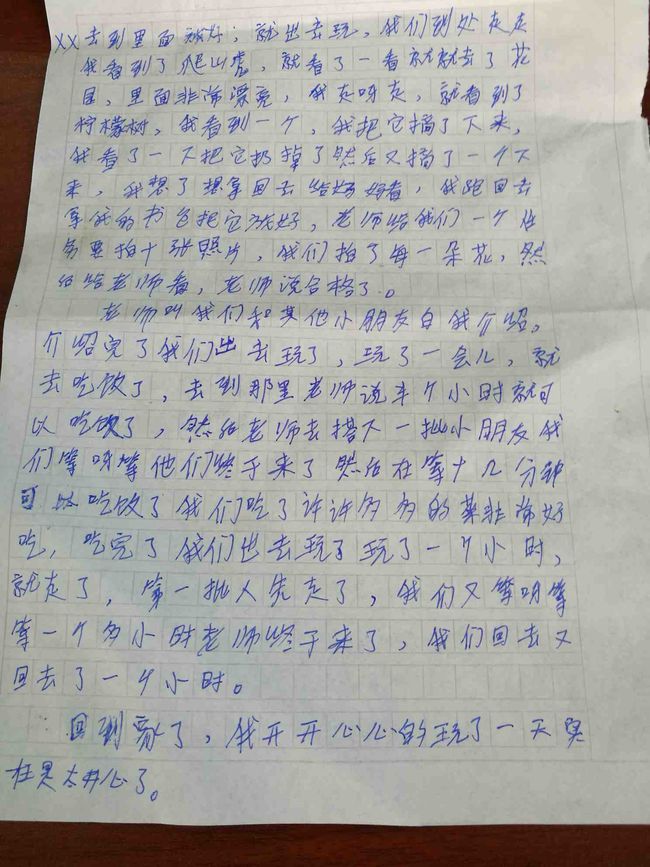 XX去到里面放好，就出去玩，我们到处走走
我看到了爬山虎，就看了一看就就去了花
园，里面非常漂亮，我走呀走，就看到了
柠檬树，我看到一个，我把它摘了下来，
我看了一下把它扔掉了然后又摘了一个下
来，我想了想拿回去给妈妈看，我跑回去
拿我的书包把它放好，老师给我们一个任
务要拍十张照片，我们拍了每一朵花，然
后给老师看，老师说合格了。
老师叫我们和其他小朋友自我介绍。
介绍完了我们出去玩了，玩了一会儿，就
去吃饭了，去到那里老师说半个小时就可
以吃饭了，然后老师去搭下一批小朋友我
们等呀等他们终于来了然后在等十几分钟
可以吃饭了我们吃了许许多多的菜非常好
吃，吃完了我们出去玩了玩了一个小时，
就走了，第一批人先走了，我们又等呀等
等一个多小时老师终于来了，我们回去又
回去了一个小时。
回到家了，我开开心心的玩了一天
在是太开心了。